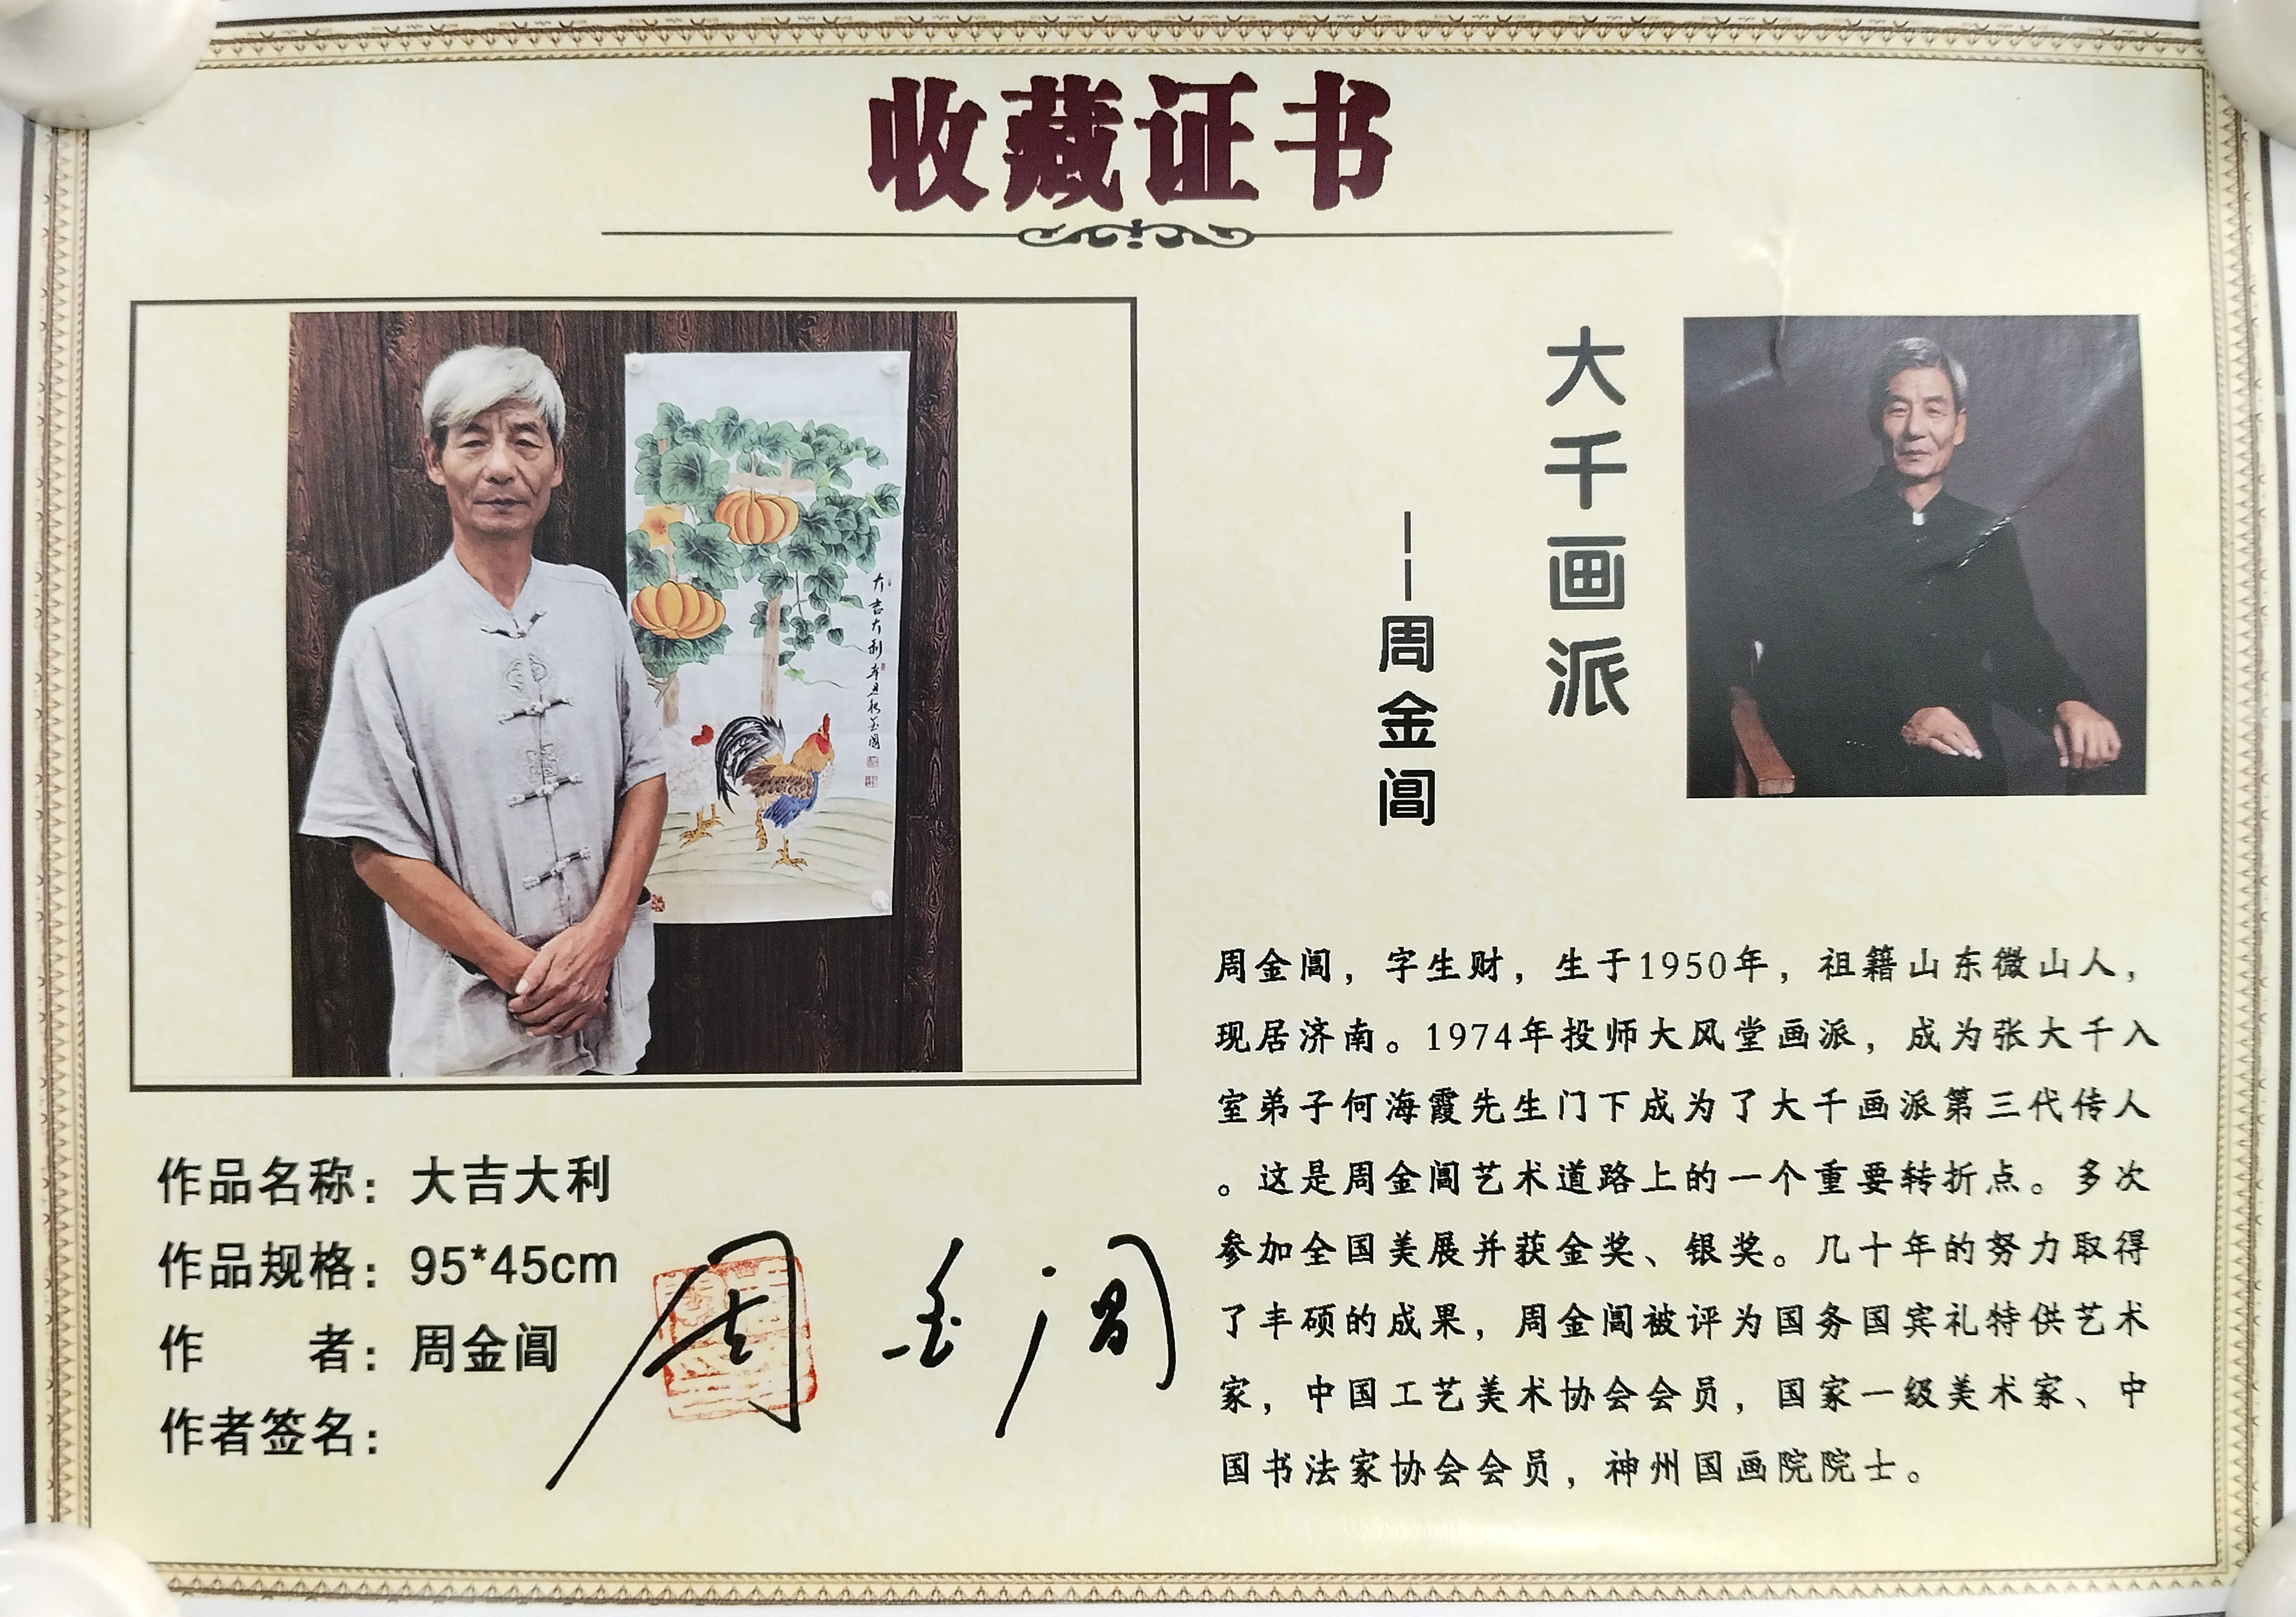 收藏证书
大吉大利 辛丑秋 金阊
大千画派
——周金阊
作品名称：大吉大利
作品规格：95*45cm
作 者：周金阊
作者签名：周金阊
周金阊，字生财，生于1950年，祖籍山东微山人，
现居济南。1974年投师大风堂画派，成为张大千入
室弟子何海霞先生门下成为了大千画派第三代传人
。这是周金阊艺术道路上的一个重要转折点。多次
参加全国美展并获金奖、银奖。几十年的努力取得
了丰硕的成果，周金阊被评为国务国宾礼特供艺术
家，中国工艺美术协会会员，国家一级美术家、中
国书法家协会会员，神州国画院院士。